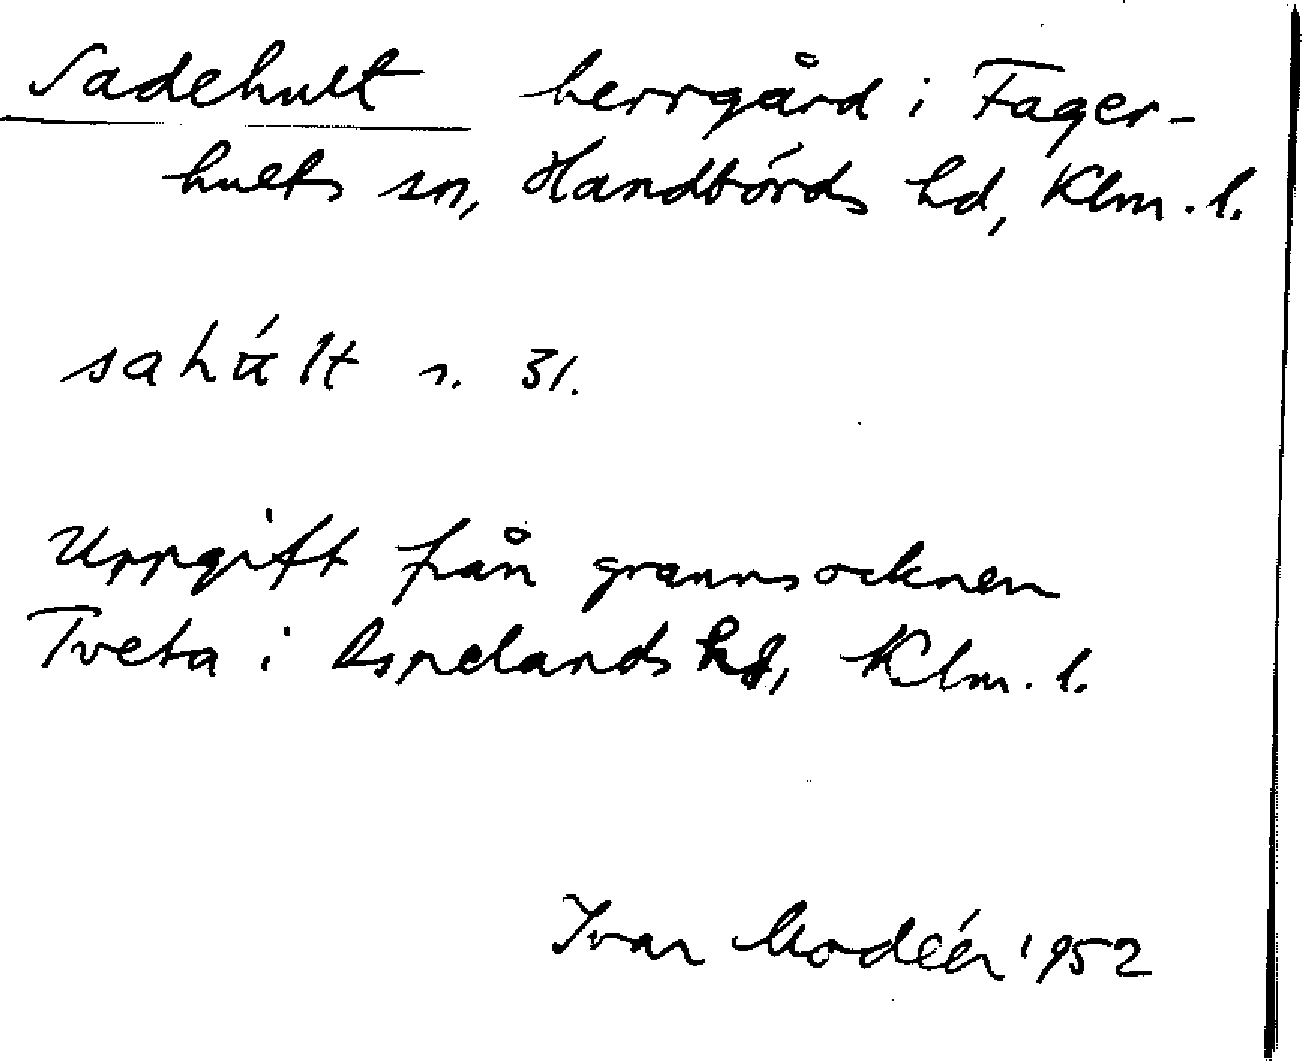 Sadehult herrgård i Fager-
hults sn, Handbörds hd, Klm. l.
sahúlt s. 31.
Uppgift från grannsocknen
Tveta i Aspelands hd, Klm. l.
Ivar Modéer 1952